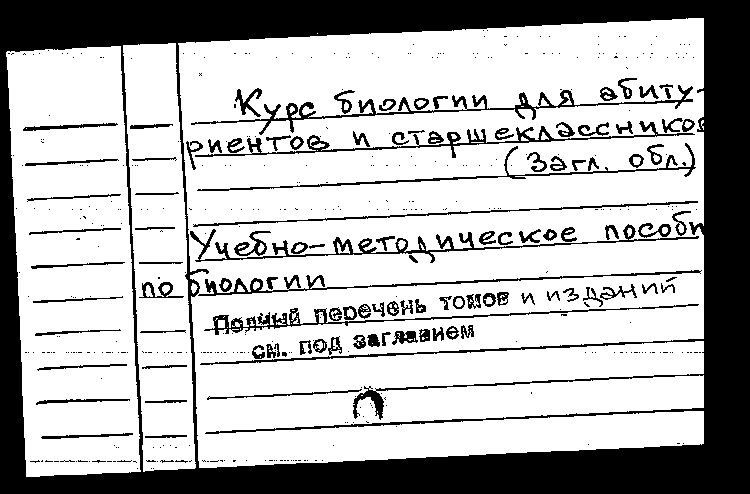 Курс биологии для абиту-
риентов и старшеклассников
(Загл. обл.)
Учебно-методическое пособи
по биологии
Полный перечень томов и изданий
см. под заглавием